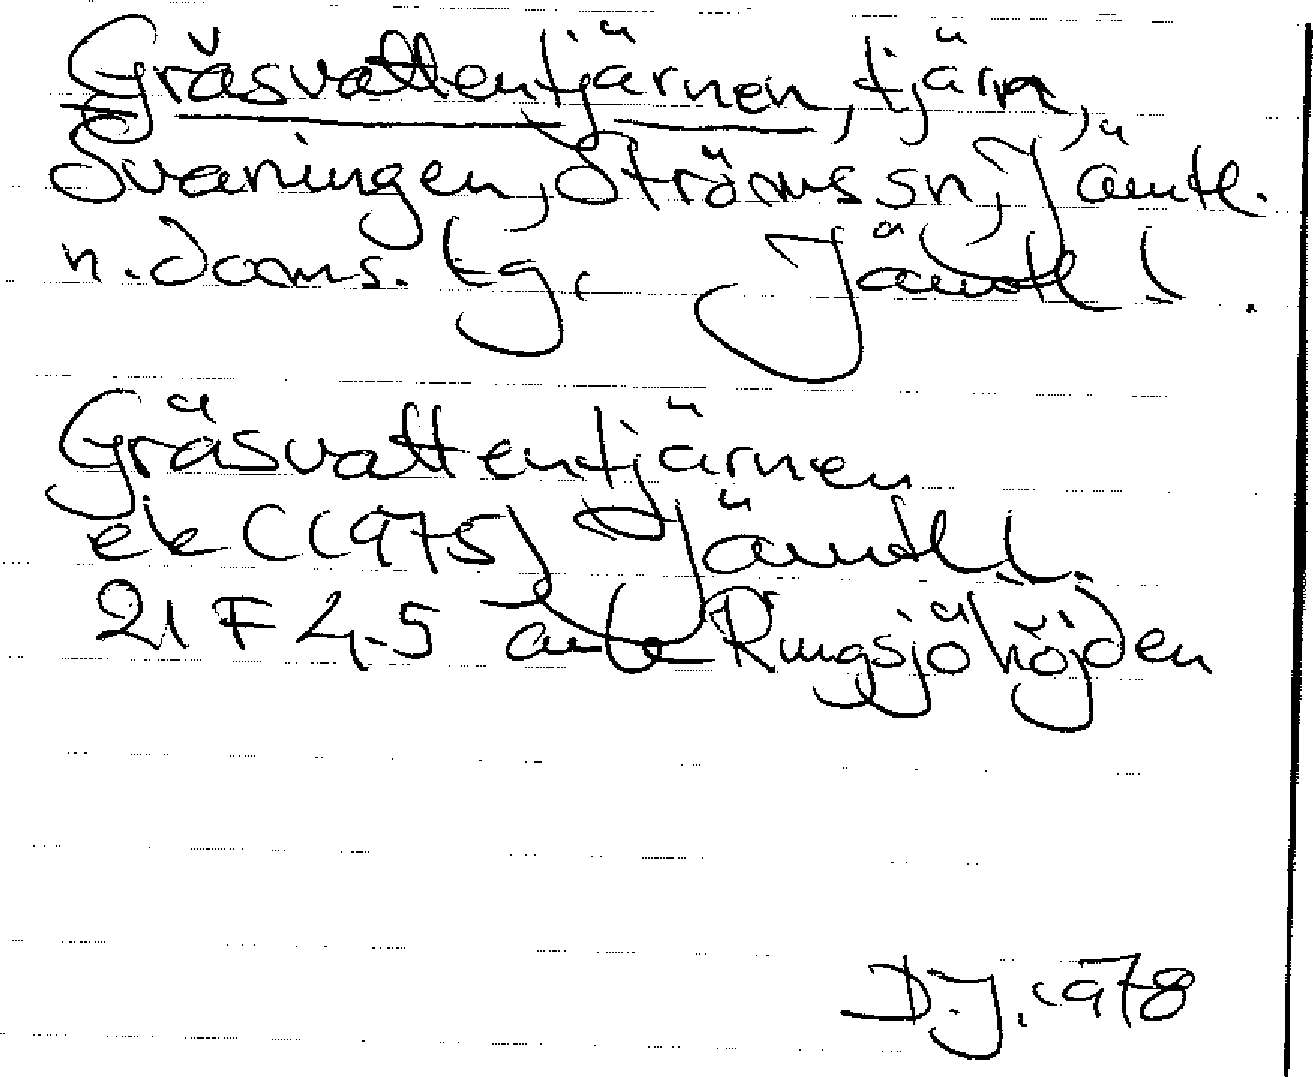 Gräsvattentjärnen, tjärn,
Svaningen, Ströms sn, Jämtl.
n. doms. tg. Jämtl l.
Gräsvattentjärnen
ek (1975) Jämtl l.
21 F 4-5 Ringsjöhöjden
D.J. 1978